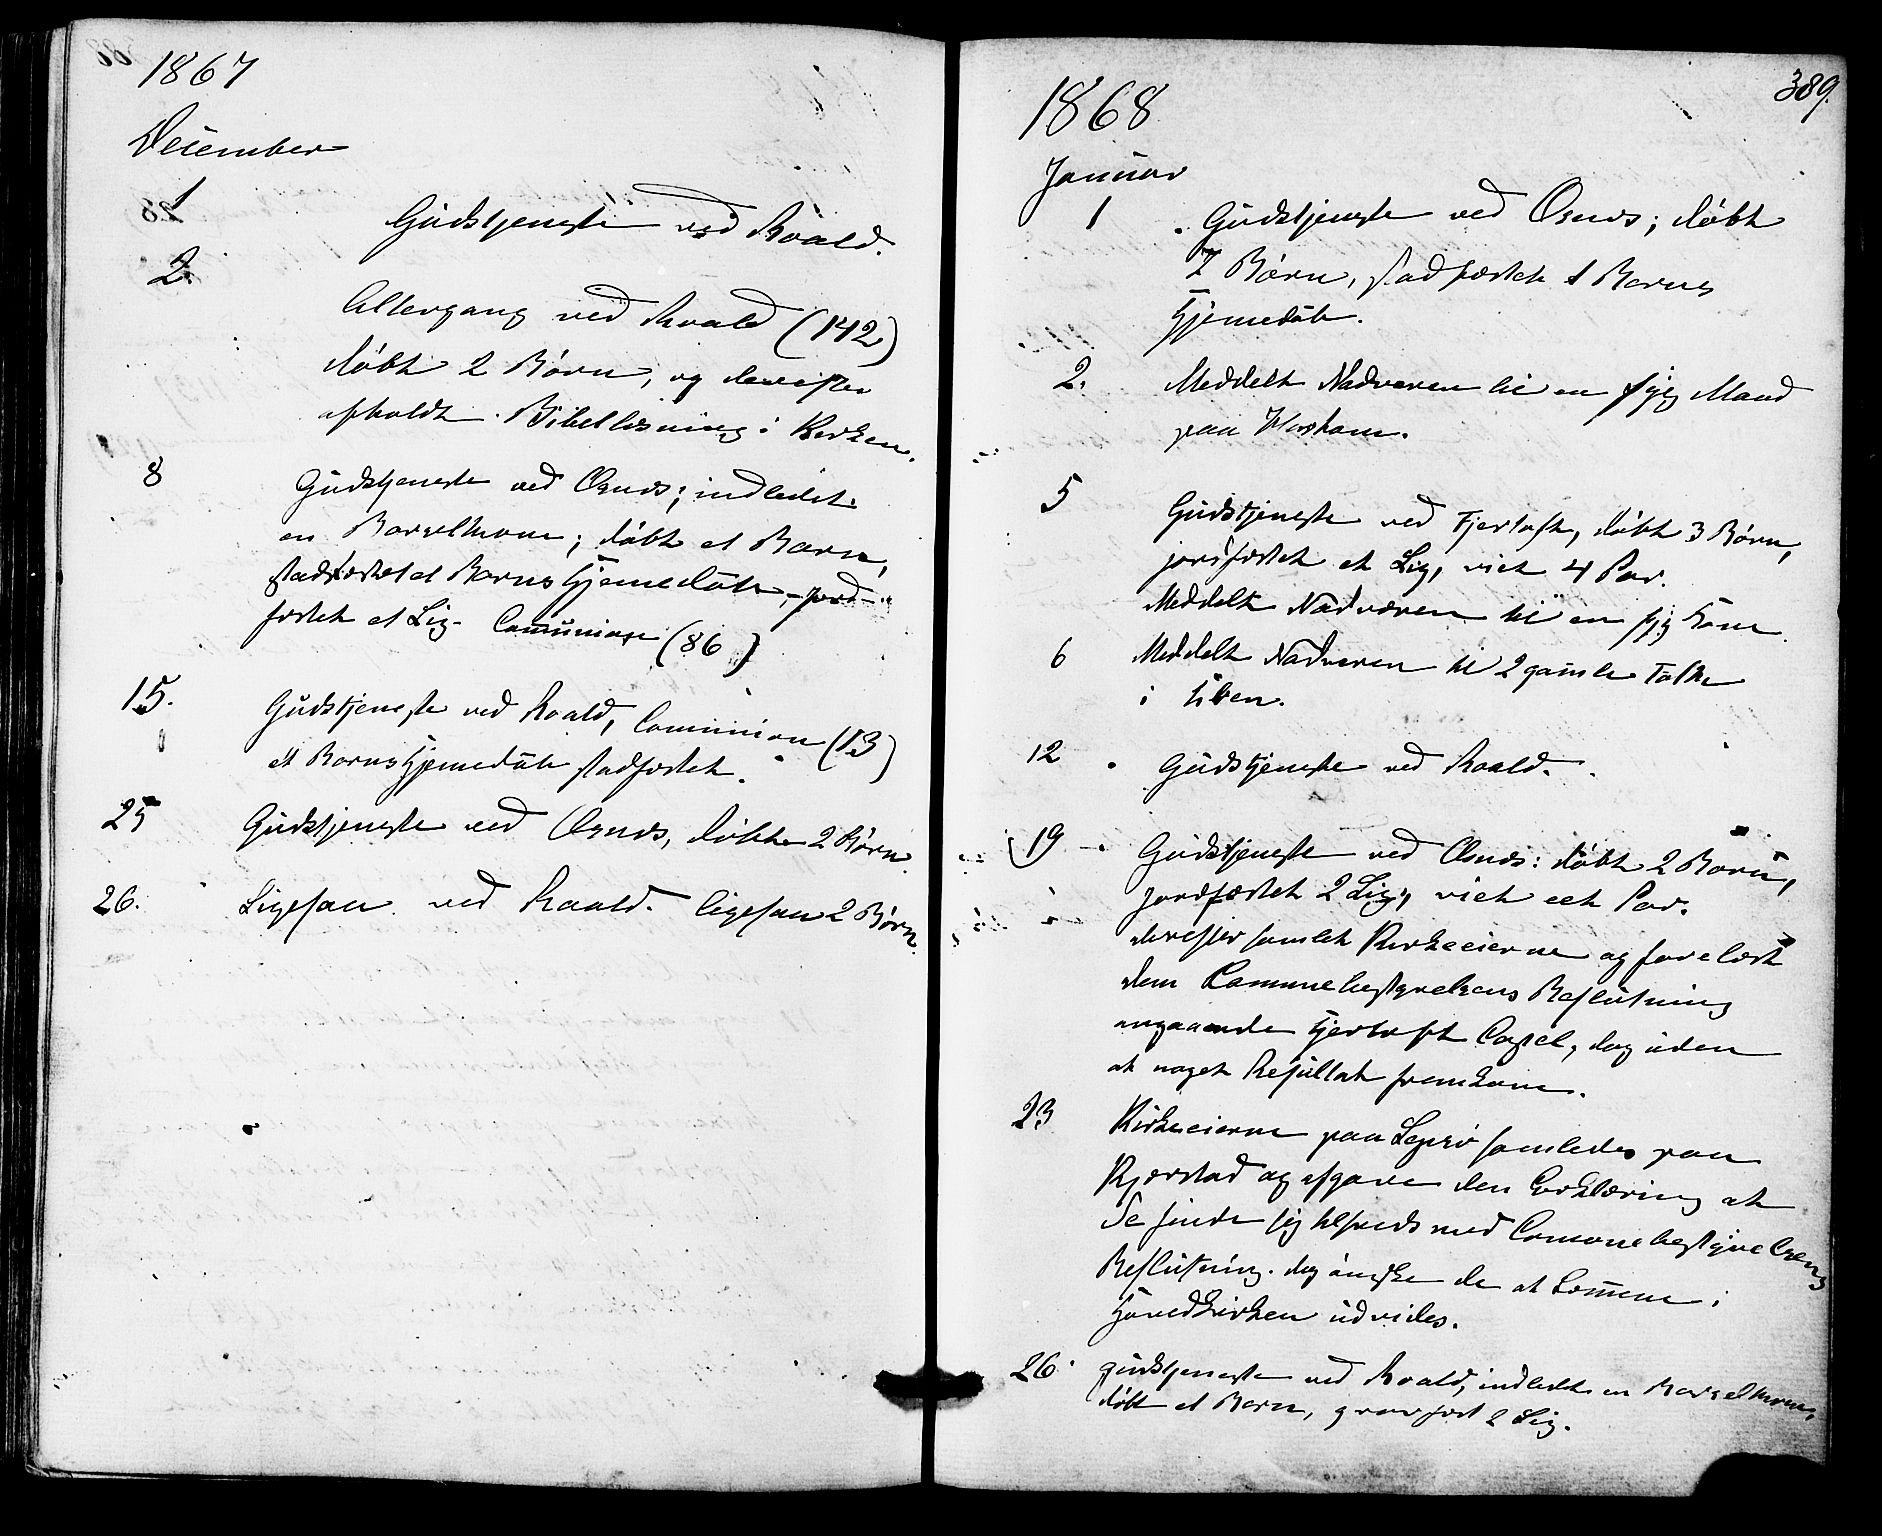 1867
December
1 Gudstjeneste ved Roald.
2. Altergang ved Roald (142)
døbt 2 Børn, og derefter
afholdt Bibellæsning i Kirken.
8 Gudstjeneste ved Osnæs; indledet
en Barselkone; døbt et Barn,
stadfæstet et Barns Hjemedåb, jord-
fæstet et Lig. Communion (86)
15. Gudstjeneste ved Roald, Communion (13)
et Barns Hjemedåb stadfæstet.
25 Gudstjeneste ved Osnæs, døbt 2 Børn.
26. Ligesaa ved Roald. ligesaa 2 Børn
389.
1868
Januar
1 Gudstjeneste ved Osnæs; døbt
2 Børn, stadfæstet 1 Barns
Hjemedåb.
2. Meddelt Nadveren til en syg Mand
paa
5 Gudstjeneste ved Fjertoft, døbt 3 Børn,
jordfæstet et Lig, viet 4 Par.
Meddelt Nadveren til en syg Kone
6 Meddelt Nadveren til 2 gamle Folk
i Ulven.
12 Gudstjeneste ved Roald.
19 Gudstjeneste ved Osnæs: døbt 2 Børn,
Jordfæstet 2 Lig, viet eet Par.
derefter samlet Kirkeeierne og forelæst
dem Communebestyrelsens Beslutning
angaaende Fjertoft Capel, dog uden
at noget Resultat fremkom.
23 Kirkeeierne paa Lepsø samledes paa
Kjerstad og afgave den Erklæring at
de finde sig tilfreds med Comunebestyrelsens
Beslutning. dog ønske de at Rommene i
Hovedkirken udvides.
26 Gudstjeneste ved Roald, indledt en Barselkone,
døbt et Barn, gravfæst 2 Lig.